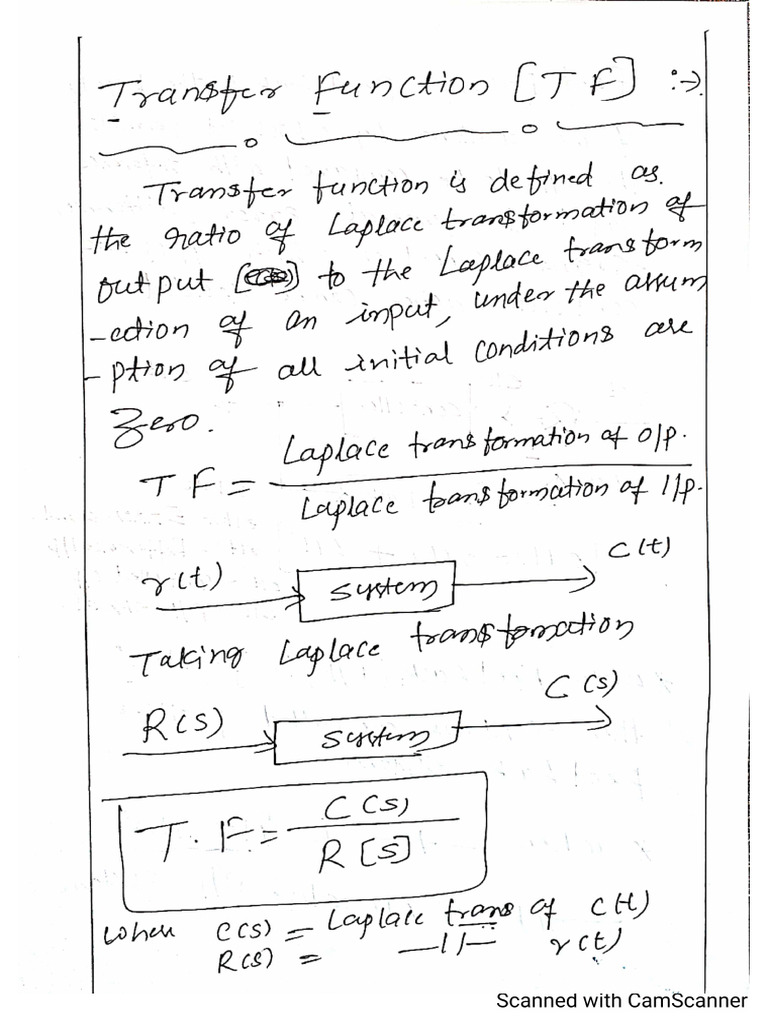 Transfer Function [TF] :→
Transfer function is defined as
the ratio of Laplace transformation of
output [ ] to the Laplace transform
-ation of an input, under the assum
-ption of all initial conditions are
Zero.
Laplace transformation of O/P.
TF = 
Laplace transformation of I/P.
r(t) system C(t)
Taking Laplace transformation
R(S) system C(S)
T.F = C(S) / R[S]
When C(S) = Laplace trans of C(t)
R(S) = —11— r(t)
Scanned with CamScanner